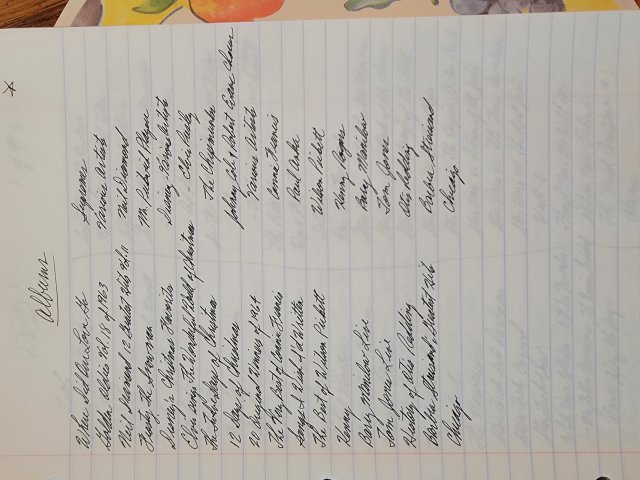 *
Albums
Where Did Our Love Go Supremes
Golden Oldies Vol. 18 of 1963 Various Artists
Neil Diamond 12 Greatest Hits Vol. II Neil Diamond
Frosty The Snowman Mr. Pickwick Player
Disney's Christmas Favorites Disney Various Artists
Elvis Sings The Wonderful World of Christmas - Elvis Presley
The Twelve Days of Christmas The Cheyennes
12 Days of Christmas Johnny Cole & Robert Evans Chorus
20 Original Winners of 1964 Various Artists
The Very Best of Connie Francis Connie Francis
Songs I Wish I'd Written Paul Anka
The Best of Wilson Pickett Wilson Pickett
Kenny Kenny Rogers
Barry Manilow Live Barry Manilow
Tom Jones Live Tom Jones
History of Otis Redding Otis Redding
Barbra Streisand's Greatest Hits Barbra Streisand
Chicago Chicago